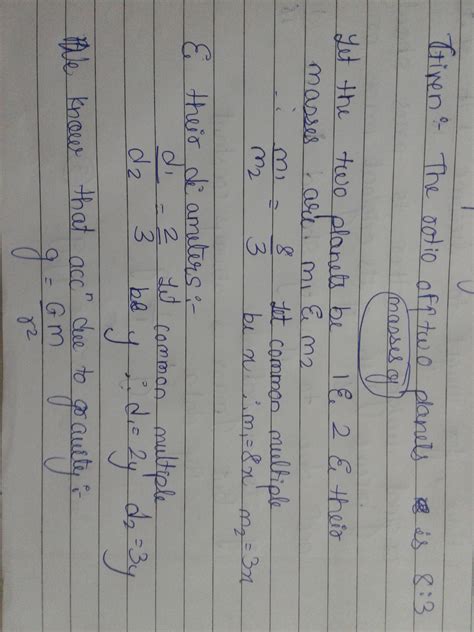 Given:- The ratio of two planets is 8:3
masses of
Let the two planets be 1 & 2 & their
masses are m1 & m2
∴ m1/m2 = 8/3 let common multiple
be x ∴ m1 = 8x m2 = 3x
& their diameters:-
d1/d2 = 2/3 let common multiple
be y ∴ d1 = 2y d2 = 3y
We know that accⁿ due to gravity:-
g = Gm/r²